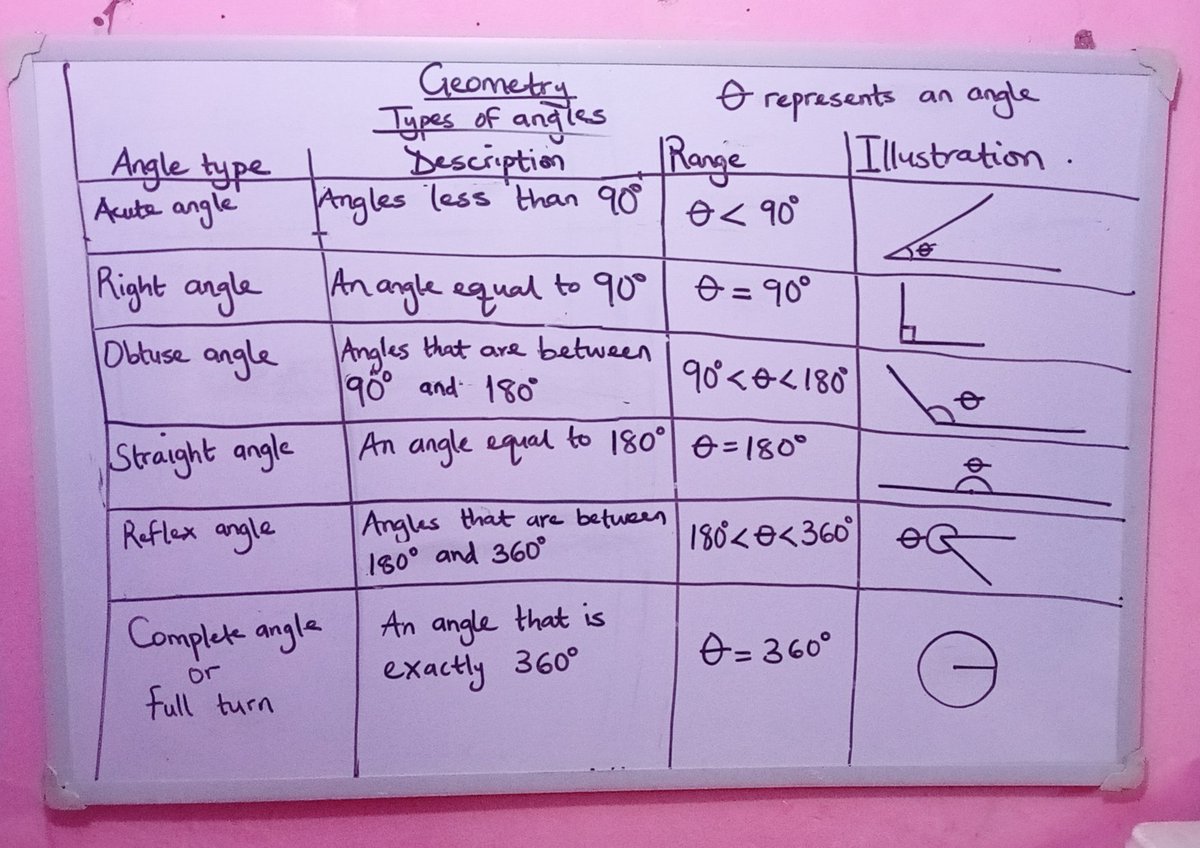 Geometry
Types of angles
θ represents an angle
Angle type Description Range Illustration .
Acute angle Angles less than 90° θ < 90° θ
Right angle An angle equal to 90° θ = 90°
Obtuse angle Angles that are between 90° < θ < 180° θ
90° and 180°
Straight angle An angle equal to 180° θ = 180° θ
Reflex angle Angles that are between 180° < θ < 360° θ
180° and 360°
Complete angle An angle that is θ = 360°
or exactly 360°
full turn